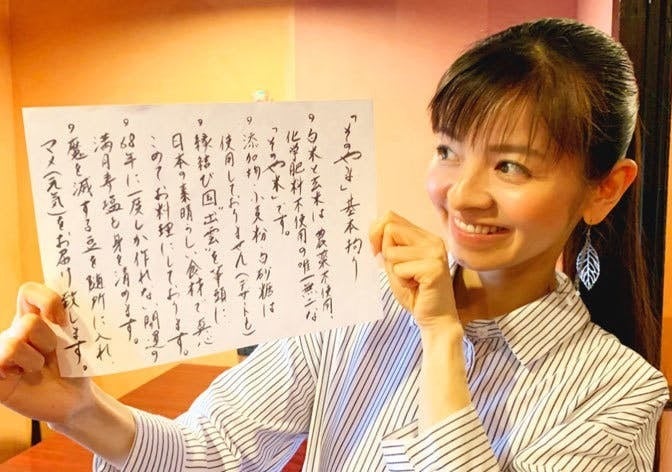 「そのや米」基本拘り
9 白米と玄米は、農薬不使用、
化学肥料不使用の唯一無二な
「そのや米」です。
9 添加物・小麦粉・白砂糖は
使用しておりません(デザートも)
9 縁結び国“出雲”を筆頭に
日本の素晴らしい食材で真心
こめてお料理にしております。
9 68年に一度しか作れない開運の
満月寿塩で身を清めます。
9 魔を滅する豆を随所に入れ
マメ(元気)をお届け致します。